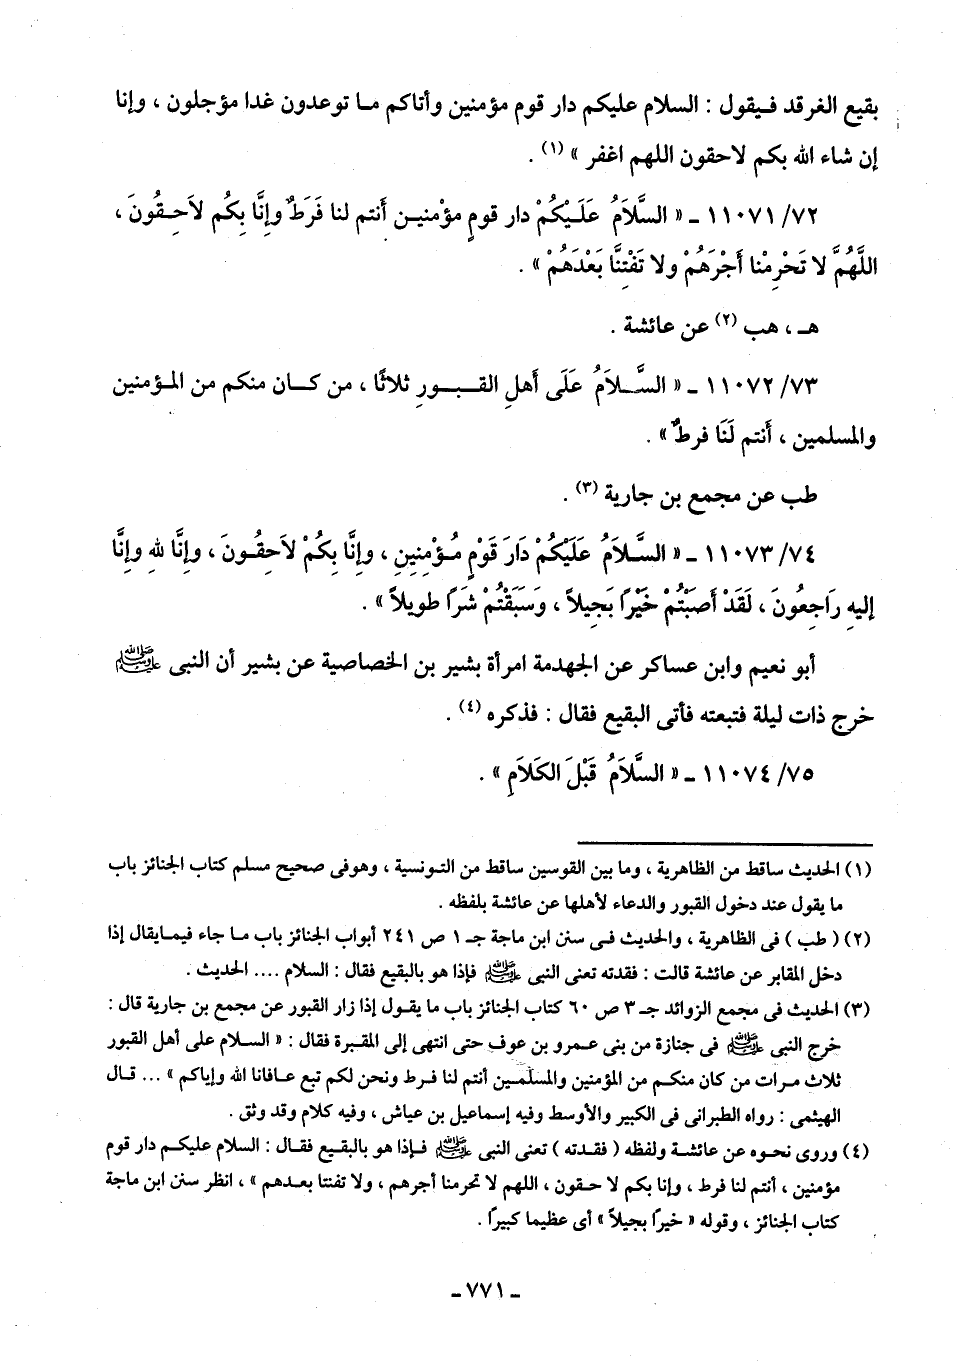 بقيع الغرقد فيقول : السلام عليكم دار قوم مؤمنين وأتاكم ما توعدون غدا مؤجلون ، وإنا
إن شاء الله بكم لاحقون اللهم اغفر » (١) .
٧٢/ ١١٠٧١ ـ « السَّلَامُ عَلَيْكُمْ دار قومٍ مؤْمنين أَنتم لنا فَرَطٌ وإِنَّا بِكُم لاَحِقُونَ ،
اللَّهُمَّ لا تَحْرِمْنا أَجْرَهُمْ ولا تَفْتِنَّا بَعْدَهُمْ » .
هـ ، هب (٢) عن عائشة .
٧٣/ ١١٠٧٢ ـ « السَّلاَمُ عَلَى أَهلِ القبورِ ثلاثًا ، من كان منكم من المؤمنين
والمسلمين ، أَنتم لَنَا فرطٌ » .
طب عن مجمع بن جارية (٣) .
٧٤/ ١١٠٧٣ ـ « السَّلاَمُ عَلَيْكُمْ دَارَ قَوْمٍ مُؤْمِنِينِ ، وإِنَّا بِكُمْ لاَحِقُونَ ، وإِنَّا للهِ وإِنَّا
إليهِ رَاجِعُونَ ، لَقَدْ أَصَبْتُمْ خَيْرًا بَجِيلاً ، وَسَبَقْتُمْ شَرًا طويلاً » .
أبو نعيم وابن عساكر عن الجهدمة امرأة بشير بن الخصاصية عن بشير أن النبى ﷺ
خرج ذات ليلة فتبعته فأتى البقيع فقال : فذكره (٤) .
٧٥/ ١١٠٧٤ ـ « السَّلاَمُ قَبْلَ الكَلاَمِ » .
(١) الحديث ساقط من الظاهرية ، وما بين القوسين ساقط من التونسية ، وهوفى صحيح مسلم كتاب الجنائز باب
ما يقول عند دخول القبور والدعاء لأهلها عن عائشة بلفظه .
(٢) ( طب ) فى الظاهرية ، والحديث فى سنن ابن ماجة جـ ١ ص ٢٤١ أبواب الجنائز باب ما جاء فيمايقال إذا
دخل المقابر عن عائشة قالت : فقدته تعنى النبى ﷺ فإذا هو بالبقيع فقال : السلام .... الحديث .
(٣) الحديث فى مجمع الزوائد جـ ٣ ص ٦٠ كتاب الجنائز باب ما يقول إذا زار القبور عن مجمع بن جارية قال :
خرج النبى ﷺ فى جنازة من بنى عمرو بن عوف حتى انتهى إلى المقبرة فقال : « السلام على أهل القبور
ثلاث مرات من كان منكم من المؤمنين والمسلمين أنتم لنا فرط ونحن لكم تبع عافانا الله وإياكم » ... قال
الهيثمى : رواه الطبرانى فى الكبير والأوسط وفيه إسماعيل بن عياش ، وفيه كلام وقد وثق .
(٤) وروى نحوه عن عائشة ولفظه ( فقدته ) تعنى النبى ﷺ فإذا هو بالبقيع فقال : السلام عليكم دار قوم
مؤمنين ، أنتم لنا فرط ، وإنا بكم لاحقون ، اللهم لا تحرمنا أجرهم ، ولا تفتنا بعدهم » ، انظر سنن ابن ماجة
كتاب الجنائز ، وقوله « خيرًا بجيلاً » أى عظيما كبيرًا .
ـ ٧٧١ ـ